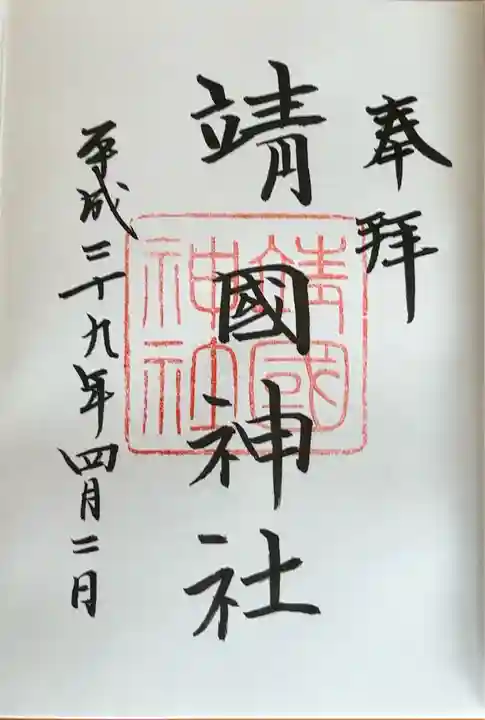 奉拝
靖國神社
靖國
神社
平成二十九年四月二日